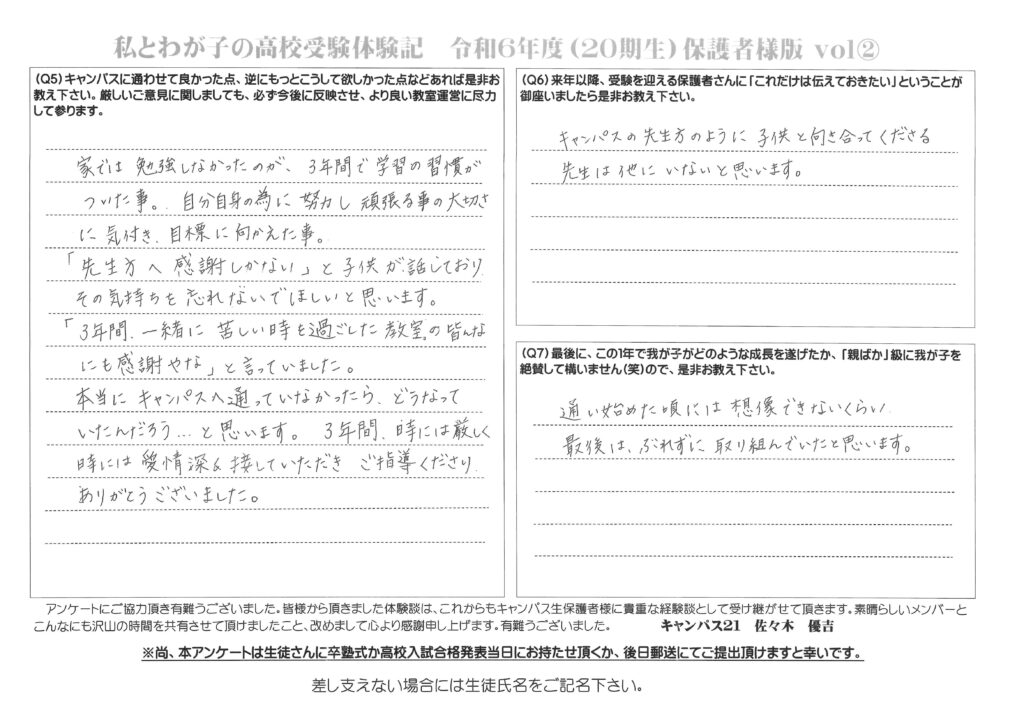 私とわが子の高校受験体験記　令和6年度(20期生)保護者様版 vol②
(Q5)キャンパスに通わせて良かった点、逆にもっとこうして欲しかった点などあれば是非お
教え下さい。厳しいご意見に関しましても、必ず今後に反映させ、より良い教室運営に尽力
して参ります。
家では 勉強しなかったのが、3年間で学習の習慣が
ついた事。自分自身の為に 努力し 頑張る事の大切さ
に 気付き、目標に向かえた事。
「先生方へ 感謝しかない」と 子供が話しており、
その気持ちを 忘れないでほしいと思います。
「3年間、一緒に 苦しい時を過ごした 教室の皆んな
にも感謝やな」と言っていました。
本当に キャンパスへ通っていなかったら、どうなって
いたんだろう…と思います。 3年間、時には厳しく
時には 愛情深く 接していただき ご指導くださり、
ありがとうございました。
(Q6)来年以降、受験を迎える保護者さんに「これだけは伝えておきたい」ということが
御座いましたら是非お教え下さい。
キャンパスの先生方のように 子供と向き合ってくださる
先生は 他に いないと思います。
(Q7)最後に、この1年で我が子がどのような成長を遂げたか、「親ばか」級に我が子を
絶賛して構いません(笑)ので、是非お教え下さい。
通い始めた頃には 想像できないくらい、
最後は、ぶれずに 取り組んでいたと思います。
アンケートにご協力頂き有難うございました。皆様から頂きました体験談は、これからもキャンパス生保護者様に貴重な経験談として受け継がせて頂きます。素晴らしいメンバーと
こんなにも沢山の時間を共有させて頂けましたこと、改めまして心より感謝申し上げます。有難うございました。　キャンパス21　佐々木　優吉
※尚、本アンケートは生徒さんに卒塾式か高校入試合格発表当日にお持たせ頂くか、後日郵送にてご提出頂けますと幸いです。
差し支えない場合には生徒氏名をご記名下さい。